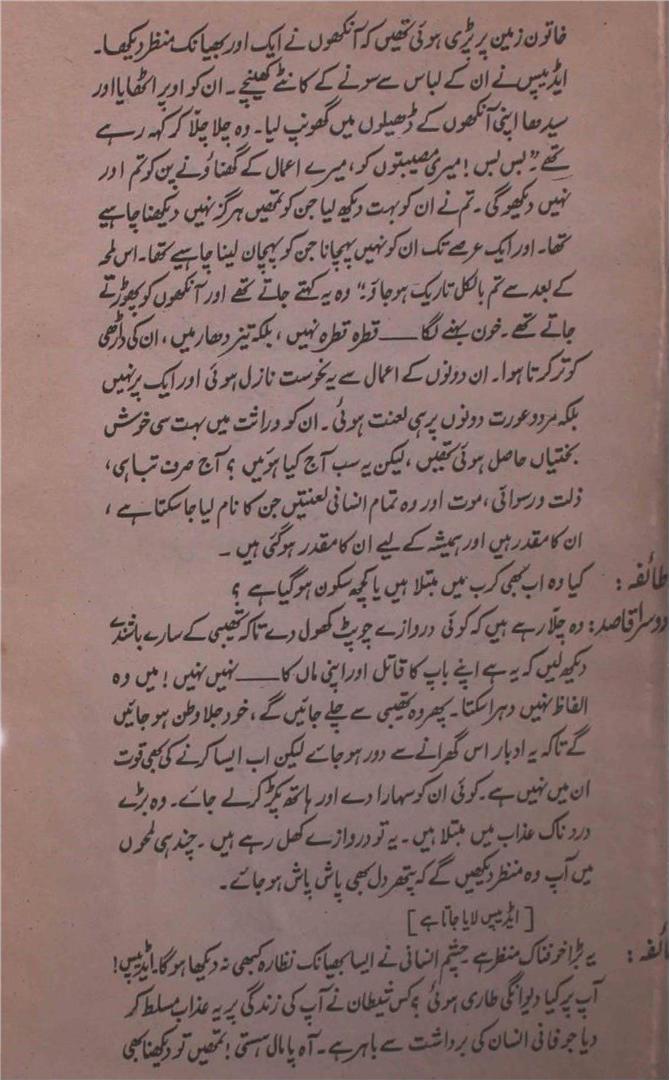 خاتون زمین پر پڑی ہوئی تھیں کہ آنکھوں نے ایک اور بھیانک منظر دیکھا۔
ایڈیپس نے ان کے لباس سے سونے کے کانٹے کھینچے۔ ان کو اوپر اٹھایا اور
سیدھا اپنی آنکھوں کے ڈھیلوں میں گھونپ لیا۔ وہ چلا چلّا کر کہہ رہے
تھے۔ "بس بس! میری مصیبتوں کو، میرے اعمال کے گھناؤنے پن کو تم اور
نہیں دیکھوگی۔ تم نے ان کو بہت دیکھ لیا جن کو تمھیں ہرگز نہیں دیکھنا چاہیے
تھا۔ اور ایک عرصے تک ان کو نہیں پہچانا جن کو پہچان لینا چاہیے تھا۔ اس لمحہ
کے بعد سے تم بالکل تاریک ہوجاؤ۔" وہ یہ کہتے جاتے تھے اور آنکھوں کو پھوڑتے
جاتے تھے۔ خون بہنے لگا ــــ قطرہ قطرہ نہیں، بلکہ تیز دھار میں، ان کی داڑھی
کو تر کرتا ہوا۔ ان دونوں کے اعمال سے یہ نحوست نازل ہوئی اور ایک پر نہیں
بلکہ مرد و عورت دونوں پر ہی لعنت ہوئی۔ ان کو وراثت میں بہت سی خوش
بختیاں حاصل ہوئی تھیں، لیکن یہ سب آج کیا ہوئیں؟ آج صرف تباہی،
ذلت و رسوائی، موت اور وہ تمام انسانی لعنتیں جن کا نام لیا جاسکتا ہے،
ان کا مقدر ہیں اور ہمیشہ کے لیے ان کا مقدر ہوگئی ہیں۔
طائفہ: کیا وہ اب بھی کرب میں مبتلا ہیں یا کچھ سکون ہوگیا ہے؟
دوسرا قاصد: وہ چلّا رہے ہیں کہ کوئی دروازے چوپٹ کھول دے تاکہ تھیبی کے سارے باشندے
دیکھ لیں کہ یہ ہے اپنے باپ کا قاتل اور اپنی ماں کا ــــ نہیں نہیں! میں وہ
الفاظ نہیں دہرا سکتا۔ پھر وہ تھیبی سے چلے جائیں گے، خود جلا وطن ہو جائیں
گے تاکہ یہ ادبار اس گھرانے سے دور ہوجائے لیکن اب ایسا کرنے کی بھی قوت
ان میں نہیں ہے۔ کوئی ان کو سہارا دے اور ہاتھ پکڑ کرلے جائے۔ وہ بڑے
دردناک عذاب میں مبتلا ہیں۔ یہ تو دروازے کھل رہے ہیں۔ چند ہی لمحوں
میں آپ وہ منظر دیکھیں گے کہ پتھر دل بھی پاش پاش ہوجائے۔
[ ایڈیپس لایا جاتا ہے ]
ائفہ: یہ بڑا خوفناک منظر ہے چشم انسانی نے ایسا بھیانک نظارہ کبھی نہ دیکھا ہوگا۔ ایڈیپس!
آپ پر کیا دیوانگی طاری ہوئی؟ کس شیطان نے آپ کی زندگی پر یہ عذاب مسلط کر
دیا جو فانی انسان کی برداشت سے باہر ہے۔ آہ پامال ہستی! تمھیں تو دیکھنا بھی